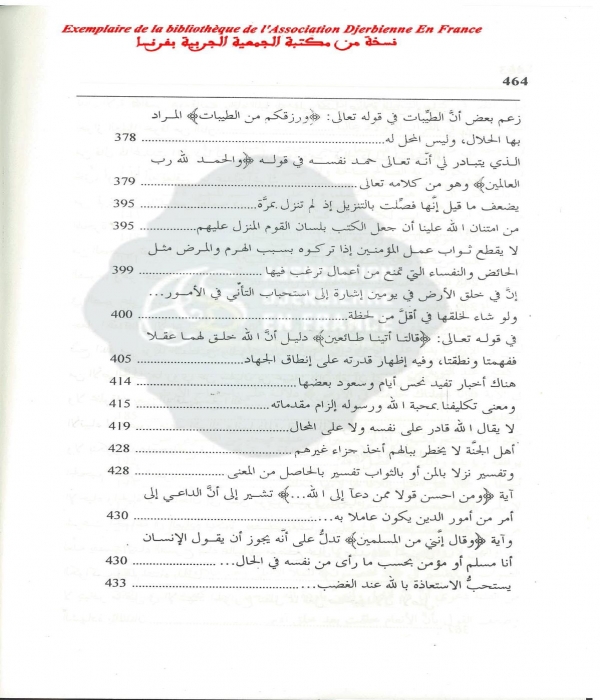 Exemplaire de la bibliothèque de l'Association Djerbienne En France
نسخة من مكتبة الجمعية الجربية بفرنسا
464
زعم بعض أنَّ الطيِّبات في قوله تعالى: ﴿ورزقكم من الطيبات﴾ المراد
بها الحلال، وليس المحل له................................ 378
الذي يتبادر لي أنـه تعالى حمد نفسـه في قولـه ﴿والحمـد لله رب
العالمين﴾ وهو من كلامه تعالى................................ 379
يضعف ما قيل إنَّها فصِّلت بالتنزيل إذ لم تنزل بمرَّة................................ 395
من امتنان الله علينا أن جعل الكتب بلسان القوم المنزل عليهم................ 395
لا يقطع ثواب عمـل المؤمنـين إذا تركـوه بسـبب الهـرم والمـرض مثـل
الحائض والنفساء التي تمنع من أعمال ترغب فيها................................ 399
إنَّ في خلق الأرض في يومين إشارة إلى استحباب التأنِّي في الأمـور...
ولو شاء لخلقها في أقلَّ من لحظة................................ 400
في قولـه تعـالى: ﴿قالتـا أتينـا طـائعين﴾ دليـل أنَّ الله خلـق لهمـا عقـلا
ففهمتا ونطقتا، وفيه إظهار قدرته على إنطاق الجهاد................................ 405
هناك أخبار تفيد نحس أيام وسعود بعضها................................ 414
ومعنى تكليفنا بمحبة الله ورسوله إلزام مقدماته................................ 415
لا يقال الله قادر على نفسه ولا على المحال................................ 419
أهل الجنَّة لا يخطر ببالهم أخذ جزاء غيرهم................................ 428
وتفسير نزلا بالمن أو بالثواب تفسير بالحاصل من المعنى................ 428
آية ﴿ومن احسن قولا ممن دعآ إلى الله...﴾ تشير إلى أنَّ الداعـي إلى
أمر من أمور الدين يكون عاملا به................................ 430
وآية ﴿وقال إنَّني من المسلمين﴾ تدلُّ على أنه يجوز أن يقول الإنسان
أنا مسلم أو مؤمن بحسب ما رأى من نفسه في الحال................ 430
يستحبُّ الاستعاذة بالله عند الغضب................................ 433